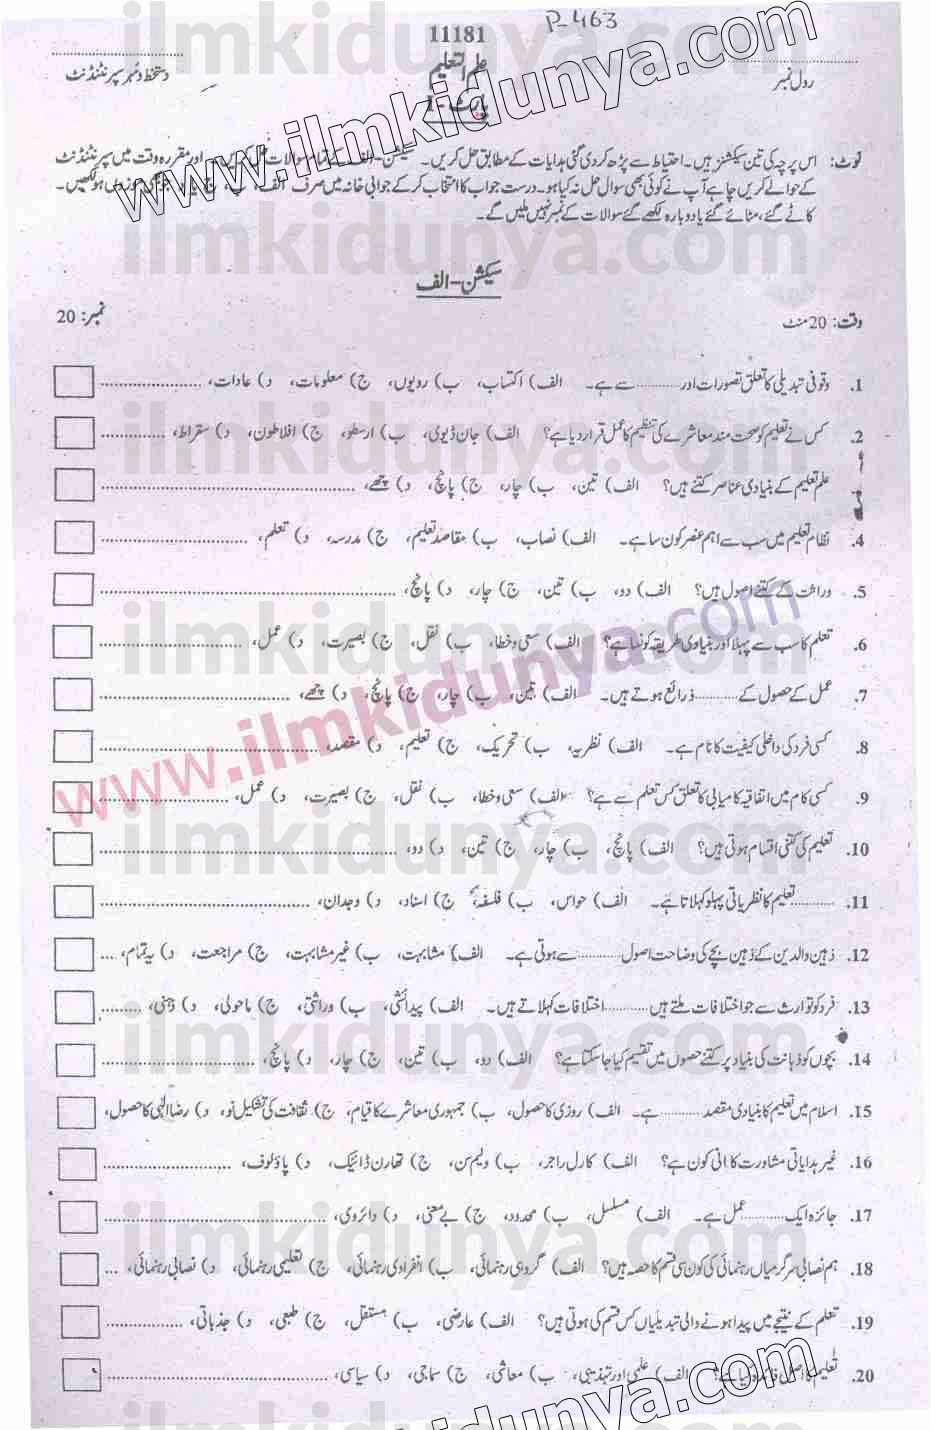 P-463
11181
علم التعلیم
پارٹ-I
رول نمبر
دستخط و مہر سپرنٹنڈنٹ
www.ilmkidunya.com
نوٹ: اس پرچہ کی تین سیکشنز ہیں۔ احتیاط سے پڑھ کر دی گئی ہدایات کے مطابق حل کریں۔ سیکشن-الف کے تمام سوالات حل کریں اور مقررہ وقت میں سپرنٹنڈنٹ
کے حوالے کریں چاہے آپ نے کوئی بھی سوال حل نہ کیا ہو۔ درست جواب کا انتخاب کرکے جوابی خانہ میں صرف الف، ب، ج یا د جو بھی موزوں ہو لکھیں۔
کاٹے گئے، مٹائے گئے یا دوبارہ لکھے گئے سوالات کے نمبر نہیں ملیں گے۔
سیکشن-الف
وقت: 20 منٹ
نمبر: 20
1. وقوفی تبدیلی کا تعلق تصورات اور .......... سے ہے۔ الف) اکتساب، ب) رویوں، ج) معلومات، د) عادات،
2. کس نے تعلیم کو صحت مند معاشرے کی تنظیم کا عمل قرار دیا ہے؟ الف) جان ڈیوی، ب) ارسطو، ج) افلاطون، د) سقراط،
علم تعلیم کے بنیادی عناصر کتنے ہیں؟ الف) تین، ب) چار، ج) پانچ، د) چھے،
4. نظام تعلیم میں سب سے اہم عنصر کون سا ہے۔ الف) نصاب، ب) مقاصد تعلیم، ج) مدرسہ، د) تعلم،
5. وراثت کے کتنے اصول ہیں؟ الف) دو، ب) تین، ج) چار، د) پانچ،
6. تعلم کا سب سے پہلا اور بنیادی طریقہ کونسا ہے؟ الف) سعی و خطا، ب) نقل، ج) بصیرت، د) عمل،
7. عمل کے حصول کے .......... ذرائع ہوتے ہیں۔ الف) تین، ب) چار، ج) پانچ، د) چھے،
8. کسی فرد کی داخلی کیفیت کا نام ہے۔ الف) نظریہ، ب) تحریک، ج) تعلیم، د) مقصد،
9. کسی کام میں اتفاقیہ کامیابی کا تعلق کس تعلم سے ہے؟ الف) سعی و خطا، ب) نقل، ج) بصیرت، د) عمل،
10. تعلیم کی کتنی اقسام ہوتی ہیں؟ الف) پانچ، ب) چار، ج) تین، د) دو،
11. .......... تعلیم کا نظریاتی پہلو کہلاتا ہے۔ الف) حواس، ب) فلسفہ، ج) اسناد، د) وجدان،
12. ذہین والدین کے ذہین بچے کی وضاحت اصول .......... سے ہوتی ہے۔ الف) مشابہت، ب) غیر مشابہت، ج) مراجعت، د) یہ تمام،
13. فرد کو توارث سے جو اختلافات ملتے ہیں .......... اختلافات کہلاتے ہیں۔ الف) پیدائشی، ب) وراثتی، ج) ماحولی، د) ذہنی،
14. بچوں کو ذہانت کی بنیاد پر کتنے حصوں میں تقسیم کیا جا سکتا ہے؟ الف) دو، ب) تین، ج) چار، د) پانچ،
15. اسلام میں تعلیم کا بنیادی مقصد .......... ہے۔ الف) روزی کا حصول، ب) جمہوری معاشرے کا قیام، ج) ثقافت کی تشکیل نو، د) رضا الٰہی کا حصول،
16. غیر ہدایاتی مشاورت کا بانی کون ہے؟ الف) کارل راجر، ب) ولیم سن، ج) تھارن ڈائیک، د) پاولوف،
17. جائزہ ایک .......... عمل ہے۔ الف) مسلسل، ب) محدود، ج) بے معنی، د) دائروی،
18. ہم نصابی سرگرمیاں رہنمائی کی کون سی قسم کا حصہ ہیں؟ الف) گروہی رہنمائی، ب) انفرادی رہنمائی، ج) تعلیمی رہنمائی، د) نصابی رہنمائی،
19. تعلم کے نتیجے میں پیدا ہونے والی تبدیلیاں کس قسم کی ہوتی ہیں؟ الف) عارضی، ب) مستقل، ج) طبعی، د) جذباتی،
20. تعلیم کا اصل فائدہ کیا ہے؟ الف) علمی اور تہذیبی، ب) معاشی، ج) سماجی، د) سیاسی،